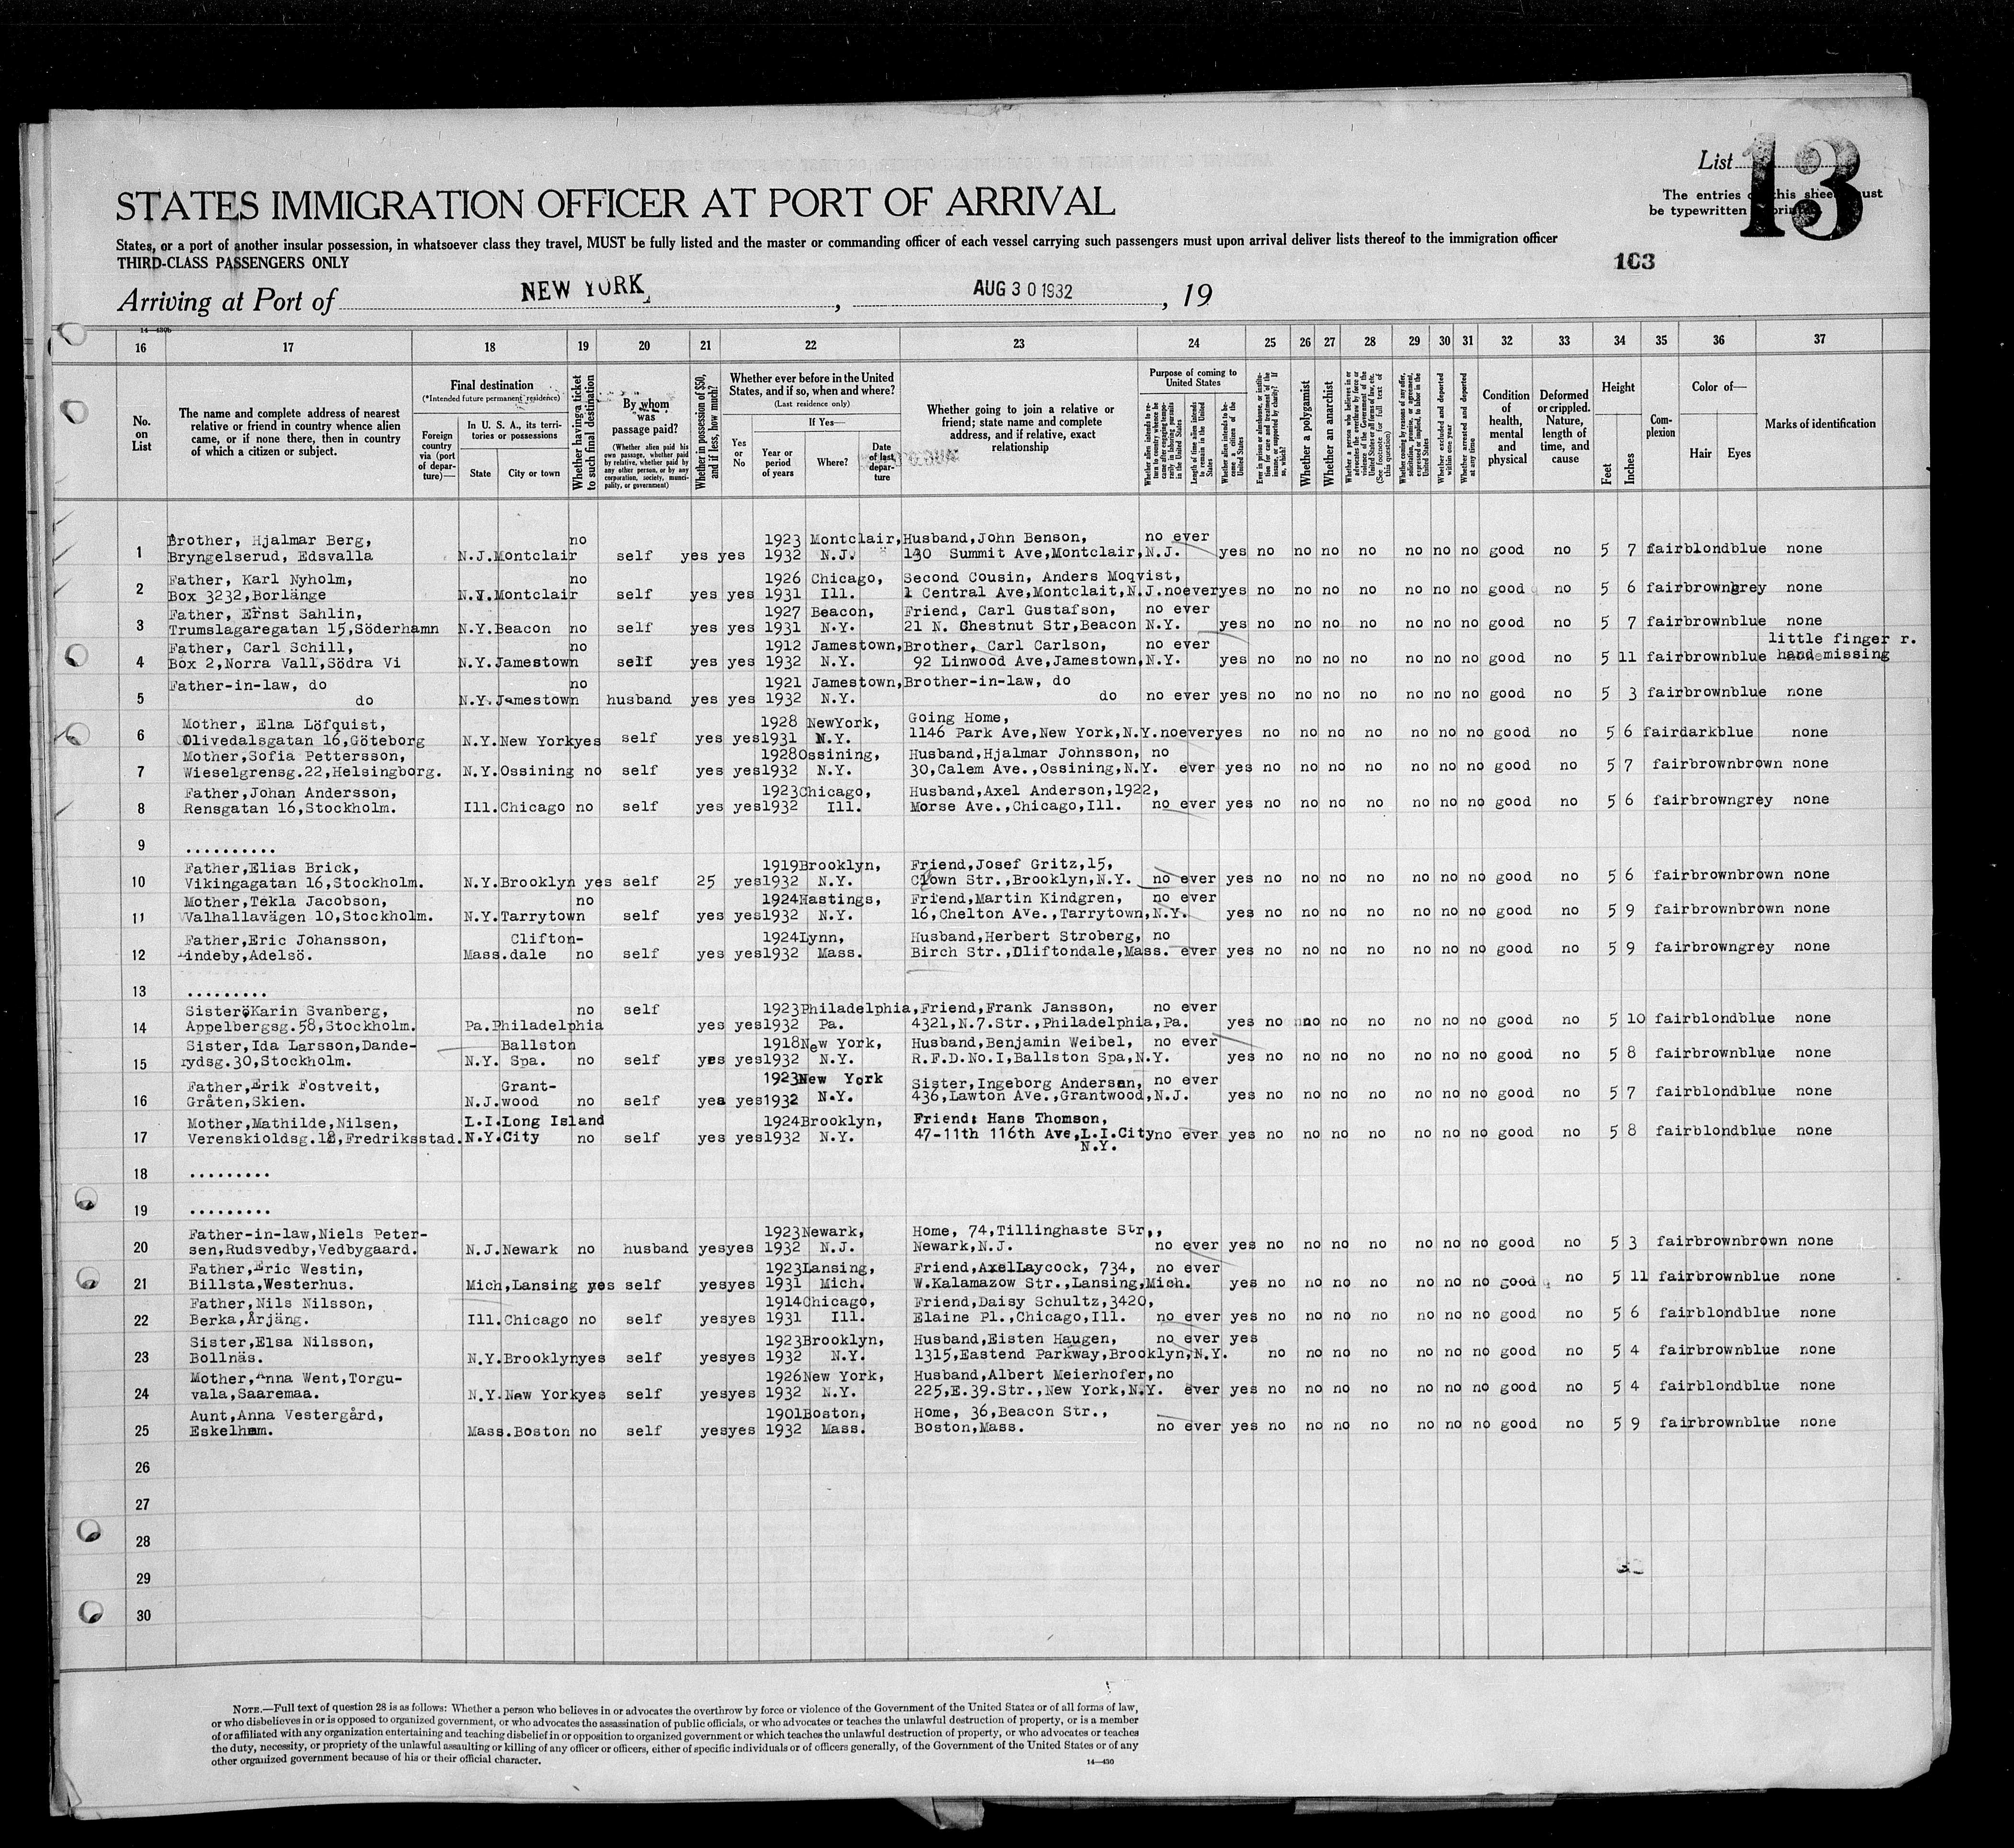 List 13
The entries on this sheet must
be typewritten or printed
STATES IMMIGRATION OFFICER AT PORT OF ARRIVAL
States, or a port of another insular possession, in whatsoever class they travel, MUST be fully listed and the master or commanding officer of each vessel carrying such passengers must upon arrival deliver lists thereof to the immigration officer
THIRD-CLASS PASSENGERS ONLY
103
Arriving at Port of NEW YORK, AUG 30 1932, 19
14—430b
16 17 18 19 20 21 22 23 24 25 26 27 28 29 30 31 32 33 34 35 36 37
No. on List
The name and complete address of nearest relative or friend in country whence alien came, or if none there, then in country of which a citizen or subject.
Final destination
(*Intended future permanent residence)
Foreign country via (port of departure)—
In U. S. A., its territories or possessions
State City or town
Whether having a ticket to such final destination
By whom was passage paid?
(Whether alien paid his own passage, whether paid by relative, whether paid by any other person, or by any corporation, society, municipality, or government)
Whether in possession of $50, and if less, how much?
Whether ever before in the United States, and if so, when and where?
(Last residence only)
Yes or No
If Yes—
Year or period of years
Where?
Date of last departure
Whether going to join a relative or friend; state name and complete address, and if relative, exact relationship
Purpose of coming to United States
Whether alien intends to return to country whence he came after engaging temporarily in laboring pursuits in the United States
Length of time alien intends to remain in the United States
Whether alien intends to become a citizen of the United States
Ever in prison or almshouse, or institution for care and treatment of the insane, or supported by charity? If so, which?
Whether a polygamist
Whether an anarchist
Whether a person who believes in or advocates the overthrow by force or violence of the Government of the United States or all forms of law, etc. (See footnote for full text of this question)
Whether coming by reason of any offer, solicitation, promise, or agreement, expressed or implied, to labor in the United States
Whether excluded and deported within one year
Whether arrested and deported at any time
Condition of health, mental and physical
Deformed or crippled. Nature, length of time, and cause
Height
Feet Inches
Complexion
Color of—
Hair Eyes
Marks of identification
Brother, Hjalmar Berg, no 1923 Montclair, Husband, John Benson, no ever
1 Bryngelserud, Edsvalla N.J. Montclair self yes yes 1932 N.J. 130 Summit Ave, Montclair, N.J. yes no no no no no no no good no 5 7 fair blond blue none
Father, Karl Nyholm, no 1926 Chicago, Second Cousin, Anders Moqvist,
2 Box 3232, Borlänge Montclair self yes yes 1931 Ill. 1 Central Ave, Montclait, N.J. no ever yes no no no no no no no good no 5 6 fair brown grey none
Father, Ernst Sahlin, 1927 Beacon, Friend, Carl Gustafson, no ever
3 Trumslagaregatan 15, Söderhamn N.Y. Beacon no self yes yes 1931 N.Y. 21 N. Chestnut Str, Beacon N.Y. yes no no no no no no no good no 5 7 fair brown blue none
Father, Carl Schill, no 1912 Jamestown, Brother, Carl Carlson, no ever little finger r.
4 Box 2, Norra Vall, Södra Vi N.Y. Jamestown self yes yes 1932 N.Y. 92 Linwood Ave, Jamestown, N.Y. yes no no no no no no no good no 5 11 fair brown blue hand missing
Father-in-law, do no 1921 Jamestown, Brother-in-law, do
5 do N.Y. Jamestown husband yes yes 1932 N.Y. do no ever yes no no no no no no no good no 5 3 fair brown blue none
Mother, Elna Löfquist, 1928 NewYork, Going Home,
6 Olivedalsgatan 16, Göteborg N.Y. New York yes self yes yes 1931 N.Y. 1146 Park Ave, New York, N.Y. no ever yes no no no no no no no good no 5 6 fair dark blue none
Mother, Sofia Pettersson, 1928 Ossining, Husband, Hjalmar Johnsson, no
7 Wieselgrensg.22, Helsingborg. N.Y. Ossining no self yes yes 1932 N.Y. 30, Calem Ave., Ossining, N.Y. ever yes no no no no no no no good no 5 7 fair brown brown none
Father, Johan Andersson, 1923 Chicago, Husband, Axel Anderson, 1922,
8 Rensgatan 16, Stockholm. Ill. Chicago no self yes yes 1932 Ill. Morse Ave., Chicago, Ill. no ever yes no no no no no no no good no 5 6 fair brown grey none
9 ..........
Father, Elias Brick, 1919 Brooklyn, Friend, Josef Gritz, 15,
10 Vikingagatan 16, Stockholm. N.Y. Brooklyn yes self 25 yes 1932 N.Y. Clown Str., Brooklyn, N.Y. no ever yes no no no no no no no good no 5 6 fair brown brown none
Mother, Tekla Jacobson, no 1924 Hastings, Friend, Martin Kindgren, no ever
11 Valhallavägen 10, Stockholm. N.Y. Tarrytown self yes yes 1932 N.Y. 16, Chelton AVe., Tarrytown, N.Y. yes no no no no no no no good no 5 9 fair brown brown none
Father, Eric Johansson, Clifton- 1924 Lynn, Husband, Herbert Stroberg, no
12 Lindeby, Adelsö. Mass. dale no self yes yes 1932 Mass. Birch Str., Dliftondale, Mass. ever yes no no no no no no no good no 5 9 fair brown grey none
13 .........
Sister, Karin Svanberg, no self 1923 Philadelphia, Friend, Frank Jansson, no ever
14 Appelbergsg.58, Stockholm. Pa. Philadelphia yes yes 1932 Pa. 4321, N.7.Str., Philadelphia, Pa. yes no no no no no no no good no 5 10 fair blond blue none
Sister, Ida Larsson, Dande- Ballston 1918 New York, Husband, Benjamin Weibel, no ever
15 rydsg.30, Stockholm. N.Y. Spa. no self yes yes 1932 N.Y. R.F.D.No.I, Ballston Spa, N.Y. yes no no no no no no no good no 5 8 fair brown blue none
Father, Erik Fostveit, Grant- 1923 New York Sister, Ingeborg Andersen, no ever
16 Gråten, Skien. N.J. wood no self yes yes 1932 N.Y. 436, Lawton Ave., Grantwood, N.J. yes no no no no no no no good no 5 7 fair blond blue none
Mother, Mathilde, Nilsen, L.I. Long Island 1924 Brooklyn, Friend: Hans Thomson,
17 Verenskioldsg.18, Fredriksstad. N.Y. City no self yes yes 1932 N.Y. 47-11th 116th Ave, L.I.City no ever yes no no no no no no no good no 5 8 fair blond blue none
N.Y.
18 .........
19 .........
Father-in-law, Niels Peter- 1923 Newark, Home, 74, Tillinghaste Str.,
20 sen, Rudsvedby, Vedbygaard. N.J. Newark no husband yes yes 1932 N.J. Newark, N.J. no ever yes no no no no no no no good no 5 3 fair brown brown none
Father, Eric Westin, 1923 Lansing, Friend, Axel Laycock, 734, no ever
21 Billsta, Westerhus. Mich, Lansing yes self yes yes 1931 Mich. W.Kalamazow Str., Lansing, Mich. yes no no no no no no no good no 5 11 fair brown blue none
Father, Nils Nilsson, 1914 Chicago, Friend, Daisy Schultz, 3420,
22 Berka, Årjäng. Ill. Chicago no self yes yes 1931 Ill. Elaine Pl., Chicago, Ill. no ever yes no no no no no no no good no 5 6 fair blond blue none
Sister, Elsa Nilsson, 1923 Brooklyn, Husband, Eisten Haugen, no ever yes
23 Bollnäs. N.Y. Brooklyn yes self yes yes 1932 N.Y. 1315, Eastend Parkway, Brooklyn, N.Y. no no no no no no no good no 5 4 fair brown blue none
Mother, Anna Went, Torgu- 1926 New York, Husband, Albert Meierhofer, no
24 vala, Saaremaa. N.Y. New York yes self yes yes 1932 N.Y. 225, E.39.Str., New York, N.Y. ever yes no no no no no no no good no 5 4 fair blond blue none
Aunt, Anna Vestergård, 1901 Boston, Home, 36, Beacon Str.,
25 Eskelhem. Mass. Boston no self yes yes 1932 Mass. Boston, Mass. no ever yes no no no no no no no good no 5 9 fair brown blue none
26
27
28
29
30
NOTE.—Full text of question 28 is as follows: Whether a person who believes in or advocates the overthrow by force or violence of the Government of the United States or of all forms of law,
or who disbelieves in or is opposed to organized government, or who advocates the assassination of public officials, or who advocates or teaches the unlawful destruction of property, or is a member
of or affiliated with any organization entertaining and teaching disbelief in or opposition to organized government or which teaches the unlawful destruction of property, or who advocates or teaches
the duty, necessity, or propriety of the unlawful assaulting or killing of any officer or officers, either of specific individuals or of officers generally, of the Government of the United States or of any
other organized government because of his or their official character.
14—430